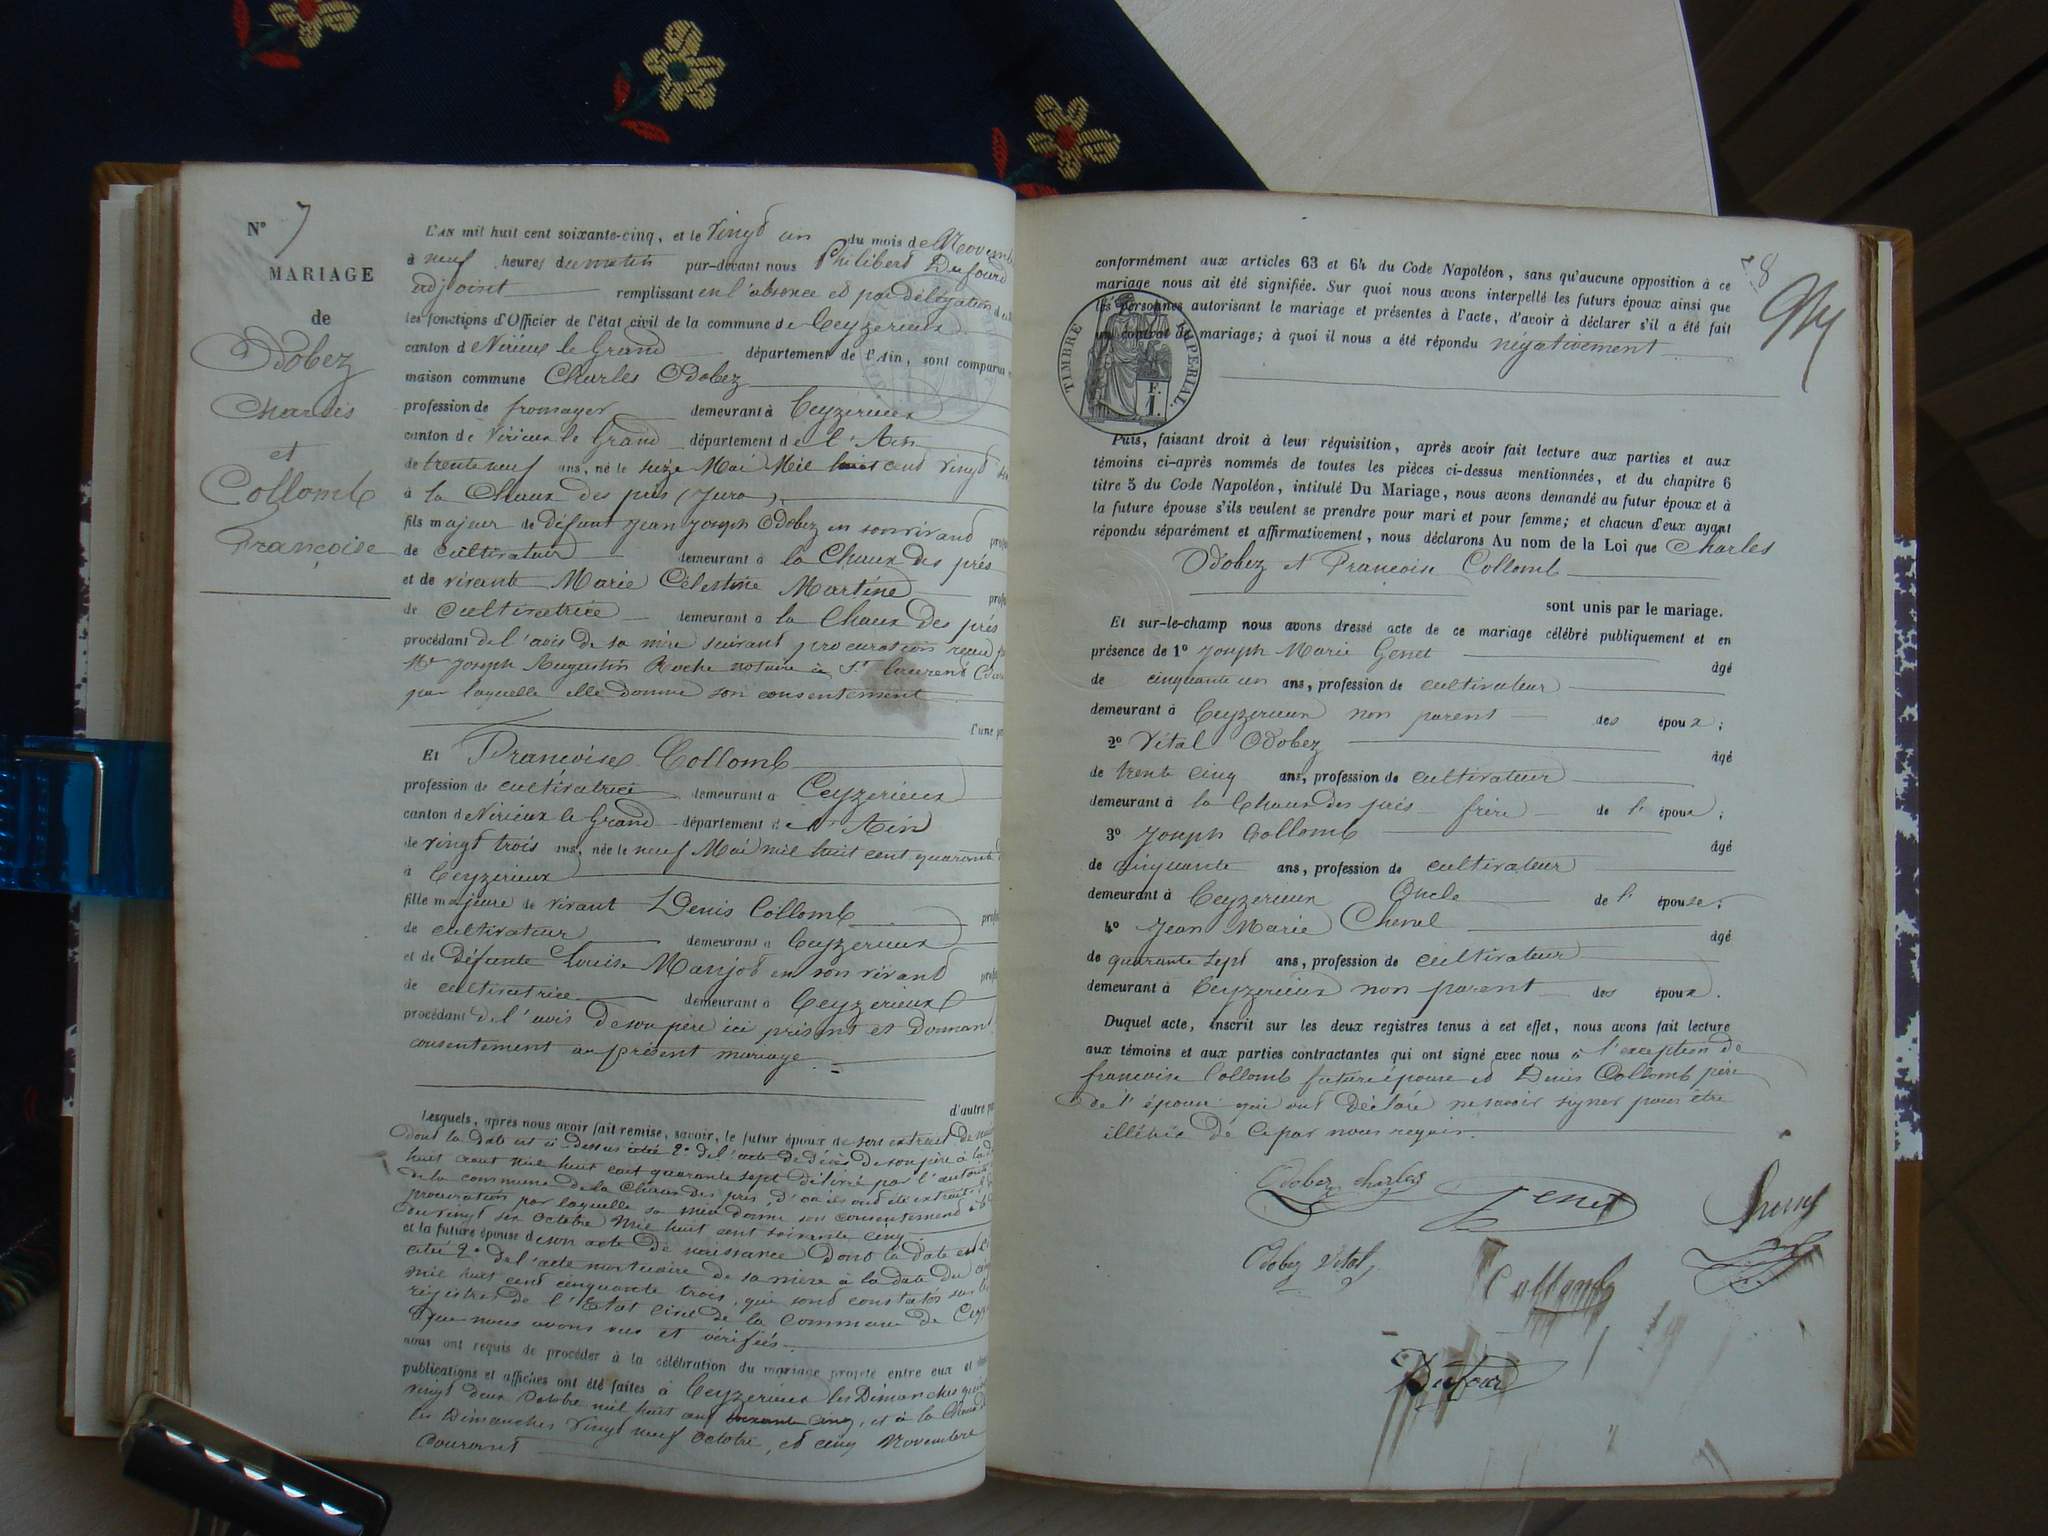 N° 7
MARIAGE
de
Odobez
Charles
et
Collomb
Françoise
L'AN mil huit cent soixante-cinq, et le vingt un du mois de Novemb
à neuf heures du matin par-devant nous Philibert Dufour
adjoint remplissant en l'absence et par délégation
les fonctions d'Officier de l'état civil de la commune de Ceyzerieux
canton de Virieux le Grand département de l'Ain, sont comparus
maison commune Charles Odobez
profession de fromager demeurant à Ceyzérieux
canton de Virieux le Grand département de l'Ain
de trente neuf ans, né le seize Mai Mil huit cent vingt six
à la Chaux des prés (Jura)
fils majeur de défunt Jean Joseph Odobez en son vivant profe
de cultivateur demeurant à la Chaux des prés
et de vivante Marie Célestine Martine profe
de cultivatrice demeurant à la Chaux des prés
procédant de l'avis de sa mère suivant procuration reçue p
Me Joseph Augustin Roche notaire à St Laurent
par laquelle elle donne son consentement
l'une pa
Et Françoise Collomb
profession de cultivatrice demeurant à Ceyzerieux
canton de Virieux le Grand département de l'Ain
de vingt trois ans, née le neuf Mai mil huit cent quarante
à Ceyzerieux
fille majeure de vivant Denis Collomb profe
de cultivateur demeurant à Ceyzerieux
et de défunte Louise Manjot en son vivant profe
de cultivatrice demeurant à Ceyzerieux
procédant de l'avis de son père ici présent et donnant
consentement au présent mariage
d'autre pa
Lesquels, après nous avoir fait remise, savoir, le futur époux de son extrait de nais
dont la date est ci-dessus citée 2° de l'acte de décès de son père à la d
huit août mil huit cent quarante sept délivré par l'autorité
de la commune de la Chaux des prés, d'où ils ont été extraits
procuration par laquelle sa mère donne son consentement à la d
du vingt six octobre mil huit cent soixante cinq
et la future épouse de son acte de naissance dont la date est ci
citée 2° de l'acte mortuaire de sa mère à la date du cinq
mil huit cent cinquante trois, qui sont constatés sur les
régistres de l'Etat Civil de la Commune de Ceyz
que nous avons vus et vérifiés
nous ont requis de procéder à la célébration du mariage projeté entre eux et dont
publications et affiches ont été faites à Ceyzerieux les Dimanches quinze
vingt deux Octobre mil huit cent soixante cinq, et à la Chaux d
les Dimanches vingt neuf octobre, et cinq Novembre
courant
8
conformément aux articles 63 et 64 du Code Napoléon, sans qu'aucune opposition à ce
mariage nous ait été signifiée. Sur quoi nous avons interpellé les futurs époux ainsi que
les personnes autorisant le mariage et présentes à l'acte, d'avoir à déclarer s'il a été fait
un contrat de mariage; à quoi il nous a été répondu négativement
TIMBRE IMPERIAL
F.
1.
Puis, faisant droit à leur réquisition, après avoir fait lecture aux parties et aux
témoins ci-après nommés de toutes les pièces ci-dessus mentionnées, et du chapitre 6
titre 5 du Code Napoléon, intitulé Du Mariage, nous avons demandé au futur époux et à
la future épouse s'ils veulent se prendre pour mari et pour femme; et chacun d'eux ayant
répondu séparément et affirmativement, nous déclarons Au nom de la Loi que Charles
Odobez et Françoise Collomb
sont unis par le mariage.
Et sur-le-champ nous avons dressé acte de ce mariage célébré publiquement et en
présence de 1° Joseph Marie Genet âgé
de cinquante un ans, profession de cultivateur
demeurant à Ceyzerieux non parent des époux;
2° Vital Odobez âgé
de trente cinq ans, profession de cultivateur
demeurant à la Chaux des prés frère de l' époux;
3° Joseph Collomb âgé
de cinquante ans, profession de cultivateur
demeurant à Ceyzerieux Oncle de l' épouse;
4° Jean Marie Chenel âgé
de quarante sept ans, profession de cultivateur
demeurant à Ceyzerieux non parent des époux.
Duquel acte, inscrit sur les deux registres tenus à cet effet, nous avons fait lecture
aux témoins et aux parties contractantes qui ont signé avec nous à l'exception de
françoise Collomb future épouse et Denis Collomb père
de l'épouse qui ont déclaré ne savoir signer pour être
illétrés de ce par nous requis.
Odobez charles Genet
Odobez Vital Collomb
Dufour